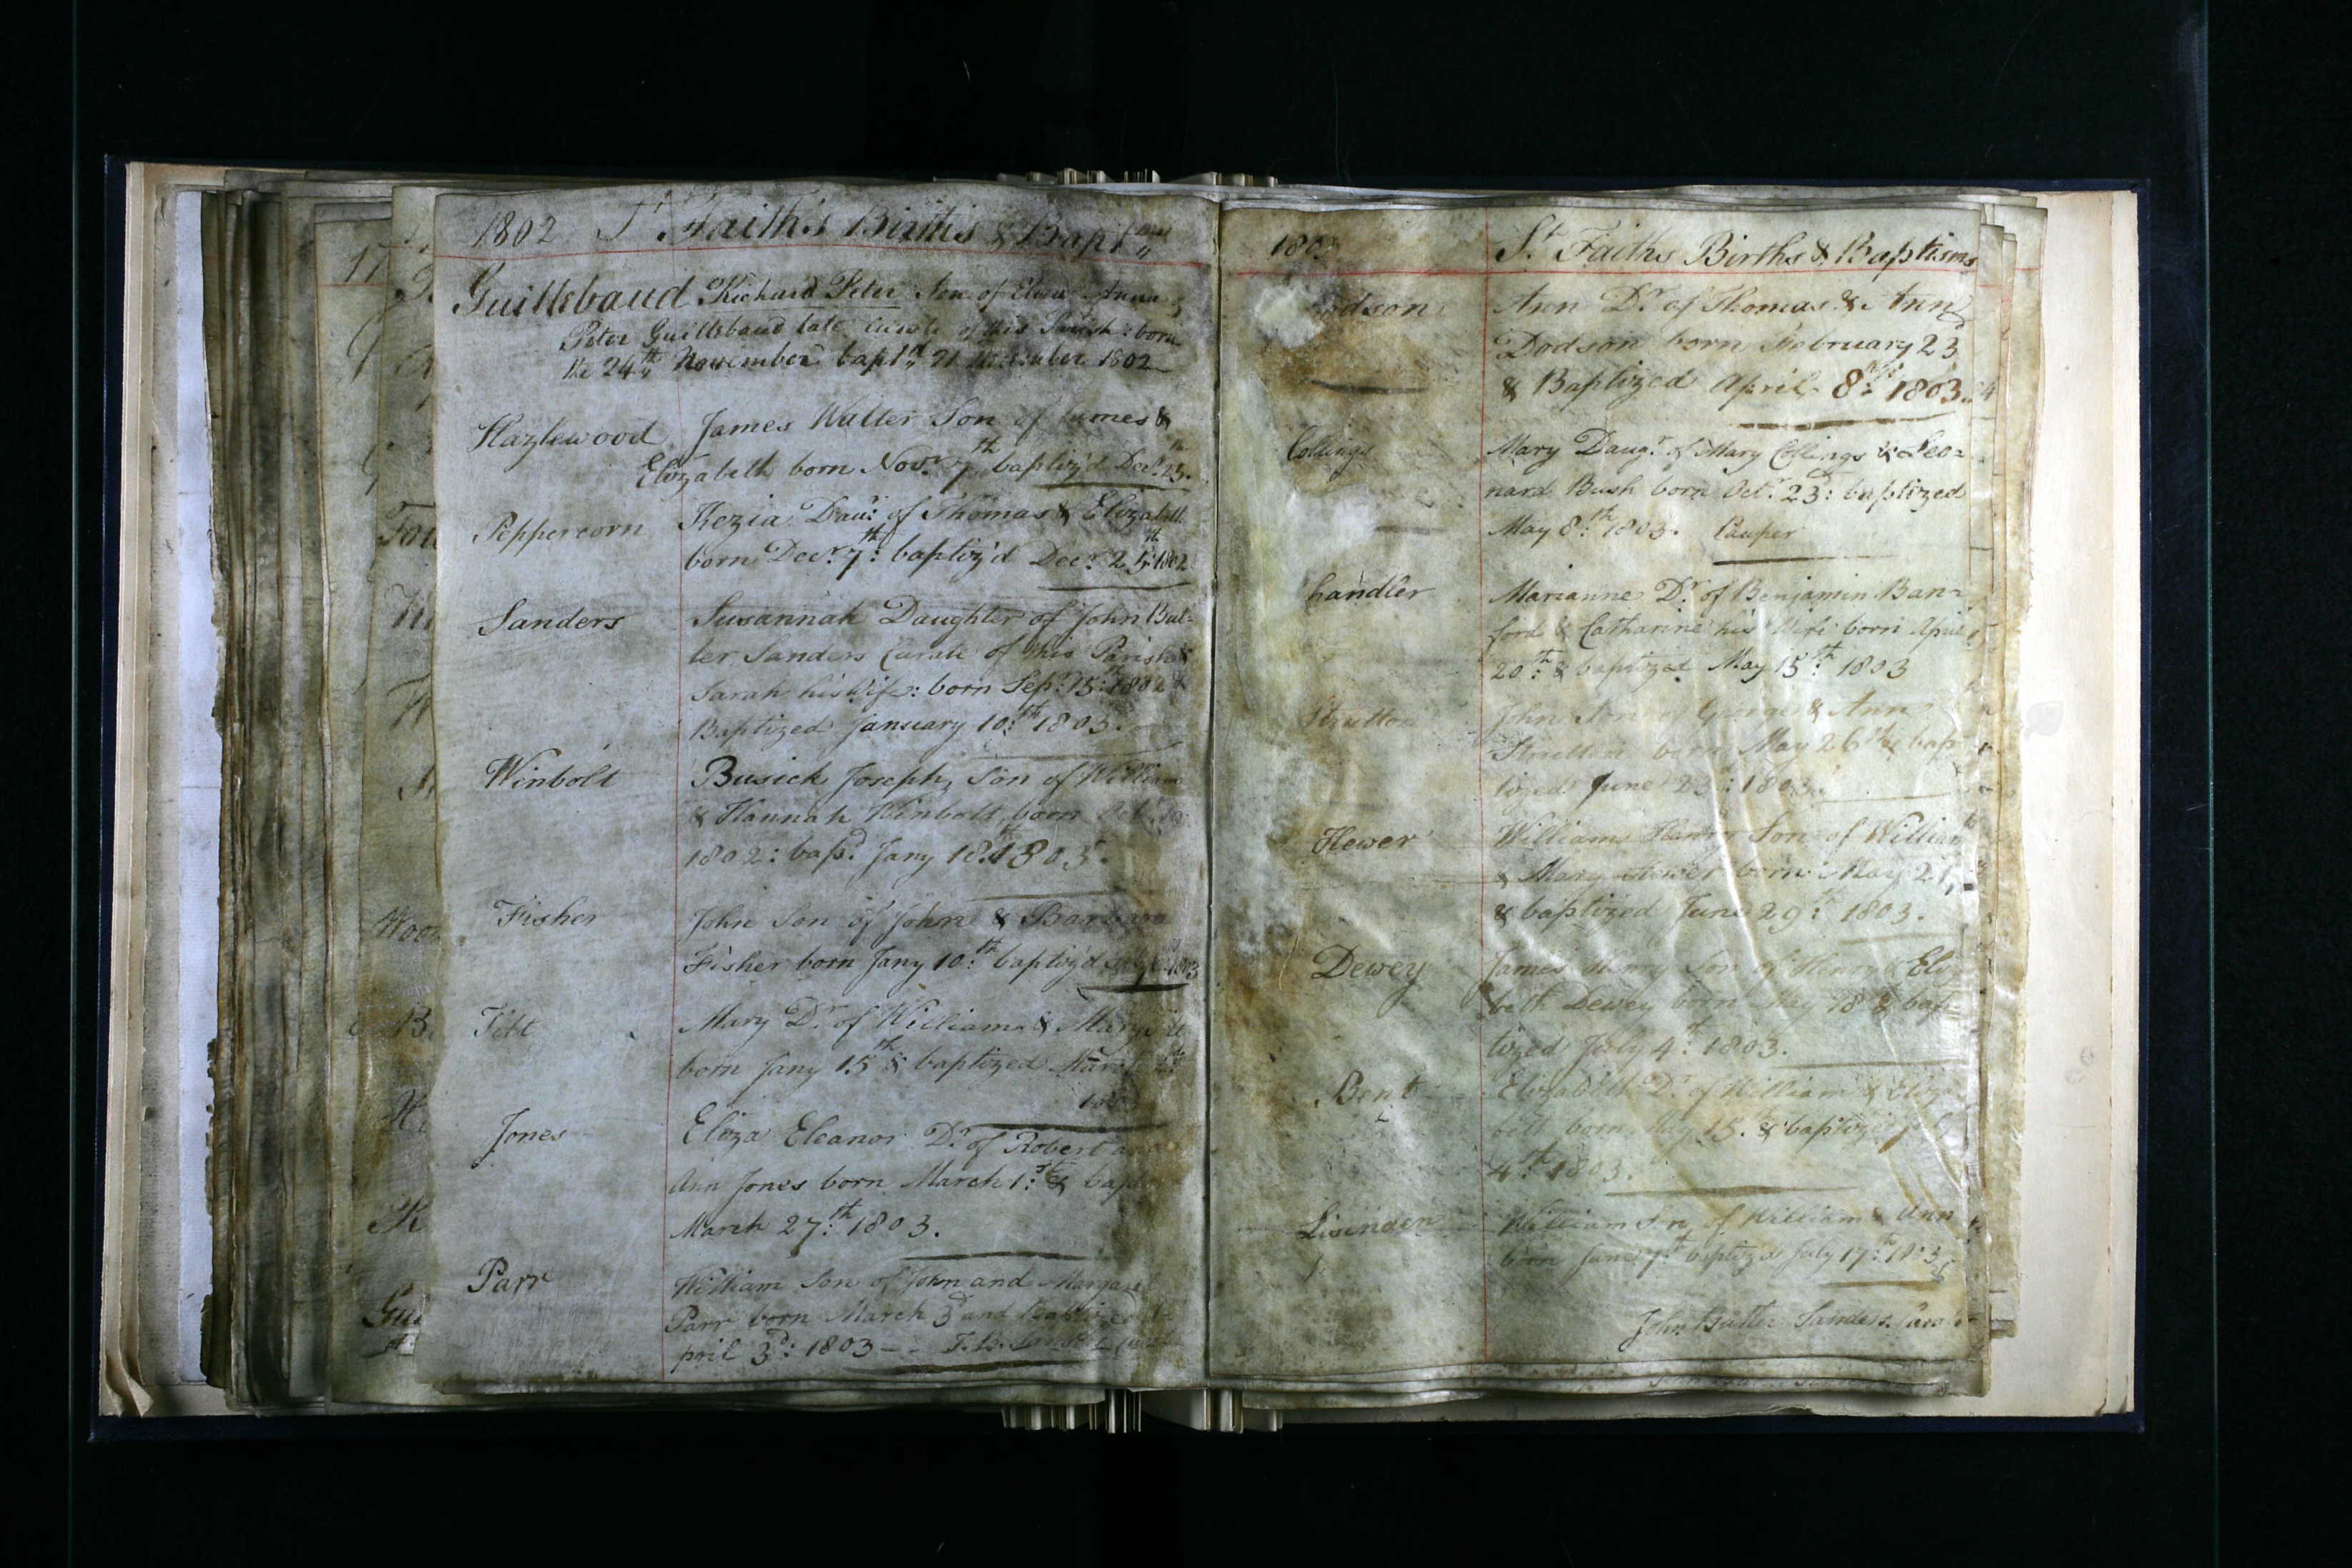 1802 St. Faith's Births & Bapt
Guillebaud Richard Peter Son of Eliza Anna &
Peter Guillebaud late Curate of this Parish: born
the 24th November bapt 21 1802
Hazlewood James Walter Son of James &
Elizabeth born Novr 7th baptiz'd Decr
Peppercorn Kezia Daur: of Thomas & Elizabeth
born Decr 7th: baptiz'd Decr 1802
Sanders Susannah Daughter of John But-
ler Sanders Curate of this Parish &
Sarah his Wife: born Sepr: 15: 1802 &
Baptized January 10th: 1803.
Winbolt Busick Joseph, Son of William
& Hannah Winbolt, born Octr
1802: bapd. Jany 18th: 1803.
Fisher John Son of John & Barbara
Fisher born Jany 10th: baptiz'd 1803
Titt Mary Dr. of William & Mary
born Jany 15th & baptized March
Jones Eliza Eleanor Dr. of Robert
Ann Jones born March 1st: &
March 27th: 1803.
Parr William Son of John and Margaret
Parr born March 3d and Baptized
pril 3d: 1803 –
1803 St. Faiths Births & Baptisms
Ann Dr. of Thomas & Ann
Dodson born February 23
& Baptized April 8th: 1803.
Collings Mary Daugr. of Mary Collings & Leo=
nard Bush born Octr. 23: baptized
May 8th: 1803. Pauper
handler Marianne Dr. of Benjamin Ban=
ford & Catharine his Wife born April
20th: & baptized May 15th: 1803
John Son of George & Ann
born May 26th & bap
tized June 1803.
Hewer William Son of William
& Mary Hewer born May 21,
& baptized June 29th: 1803.
Dewey James Henry Son of Henry & Eliz
beth Dewey born May 18 & bap=
tized July 4th: 1803.
Bent Elizabeth Dr. of William & Eliza
beth born May 15. & baptized July
4th 1803.
William Son of William & Ann
born June 7th baptized July 17th: 1803
John Butler Sanders. Curate